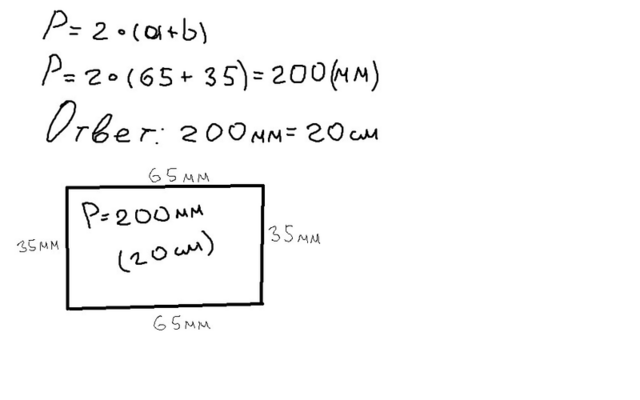 P = 2 • (a+b)
P = 2 • (65 + 35) = 200 (мм)
Ответ: 200мм = 20 см
65мм
P = 200 мм
35мм
35мм
(20 см)
65мм